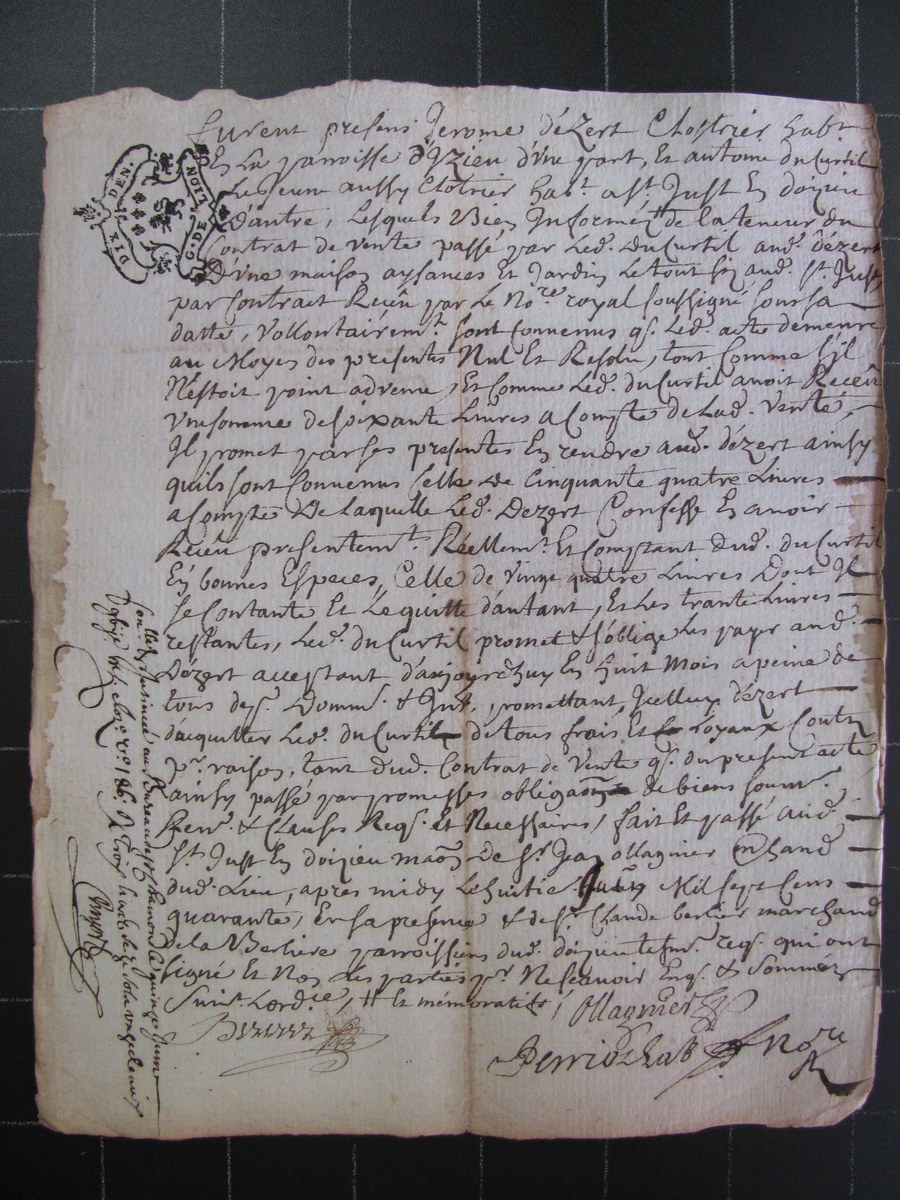 G. DE LION
DIX DEN.
Furent presens Jerome dézert Clostrier habt
En La parroisse d'Izieu d'Une part, Et antoine du Curtil
Lejeune aussy Clotrier habt. a St. Just En doizieu
D'autre, Lesquels Bien Informés de la teneur du
Contrat de vente passé par Led. du Curtil aud. dézert
D'Une maison aysances Et Jardin Le tout sis aud. St. Just,
par Contract Receu par Le Nore. royal soussigné sous sa
datte, Vollontairemt. sont Convenus q. Led. acte demeure
au Moyes des presentes Nul Et Resolu, tout Comme s'il
N'estoit point advenu, Et Comme Led. du Curtil avoit Receu
Une somme de soixante Livres a Compte de Lad. Vente,
Il promet par ses presentes En rendre aud. dézert ainsy
quils sont Convenus Celle de Cinquante quatre Livres
a Compte De Laquelle Led. Dezert Confesse En avoir
Receu presentemt. Réellemt. Et Comptant dud. du Curtil
En bonnes Especes, Celle de Vingt quatre Livres Dont Il
se Contante Et Le quitte d'autant, Et Les trante Livres
restantes, Led. du Curtil promet & s'oblige Les payer aud.
Dézert acceptant d'aujourdhuy En huit Mois a peine de
tous desp. Domm. & Int. promettant Jcelluy dézert
d'acquitter Led. du Curtil de tous frais Et Loyaux Couts
pr. raison, tant dud. Contrat de Vente q. du present acte
ainsy passé par promesses obligaōn de biens soumn.
Renn. & Clauses Req. et Necessaires, fait Et passé aud.
St. Just En doizieu maōn De Sr. Jean ollagnier mchand
dud. Lieu, apres midy Le huitie. Juin Mil sept Cens
quarante, En sa presence & de Sr. Claude berlier marchand
de la Berliere parroissiens dud. doizieu tesm. req. qui ont
signé Et Non Les parties pr. Ne scavoir Enq. & Sommés
Suivt. Lordce. /
Ollagnier
Berlier
Perriochab Nore
Conllé & Insinué au Bureau de St. Chamond Le quinze Juin